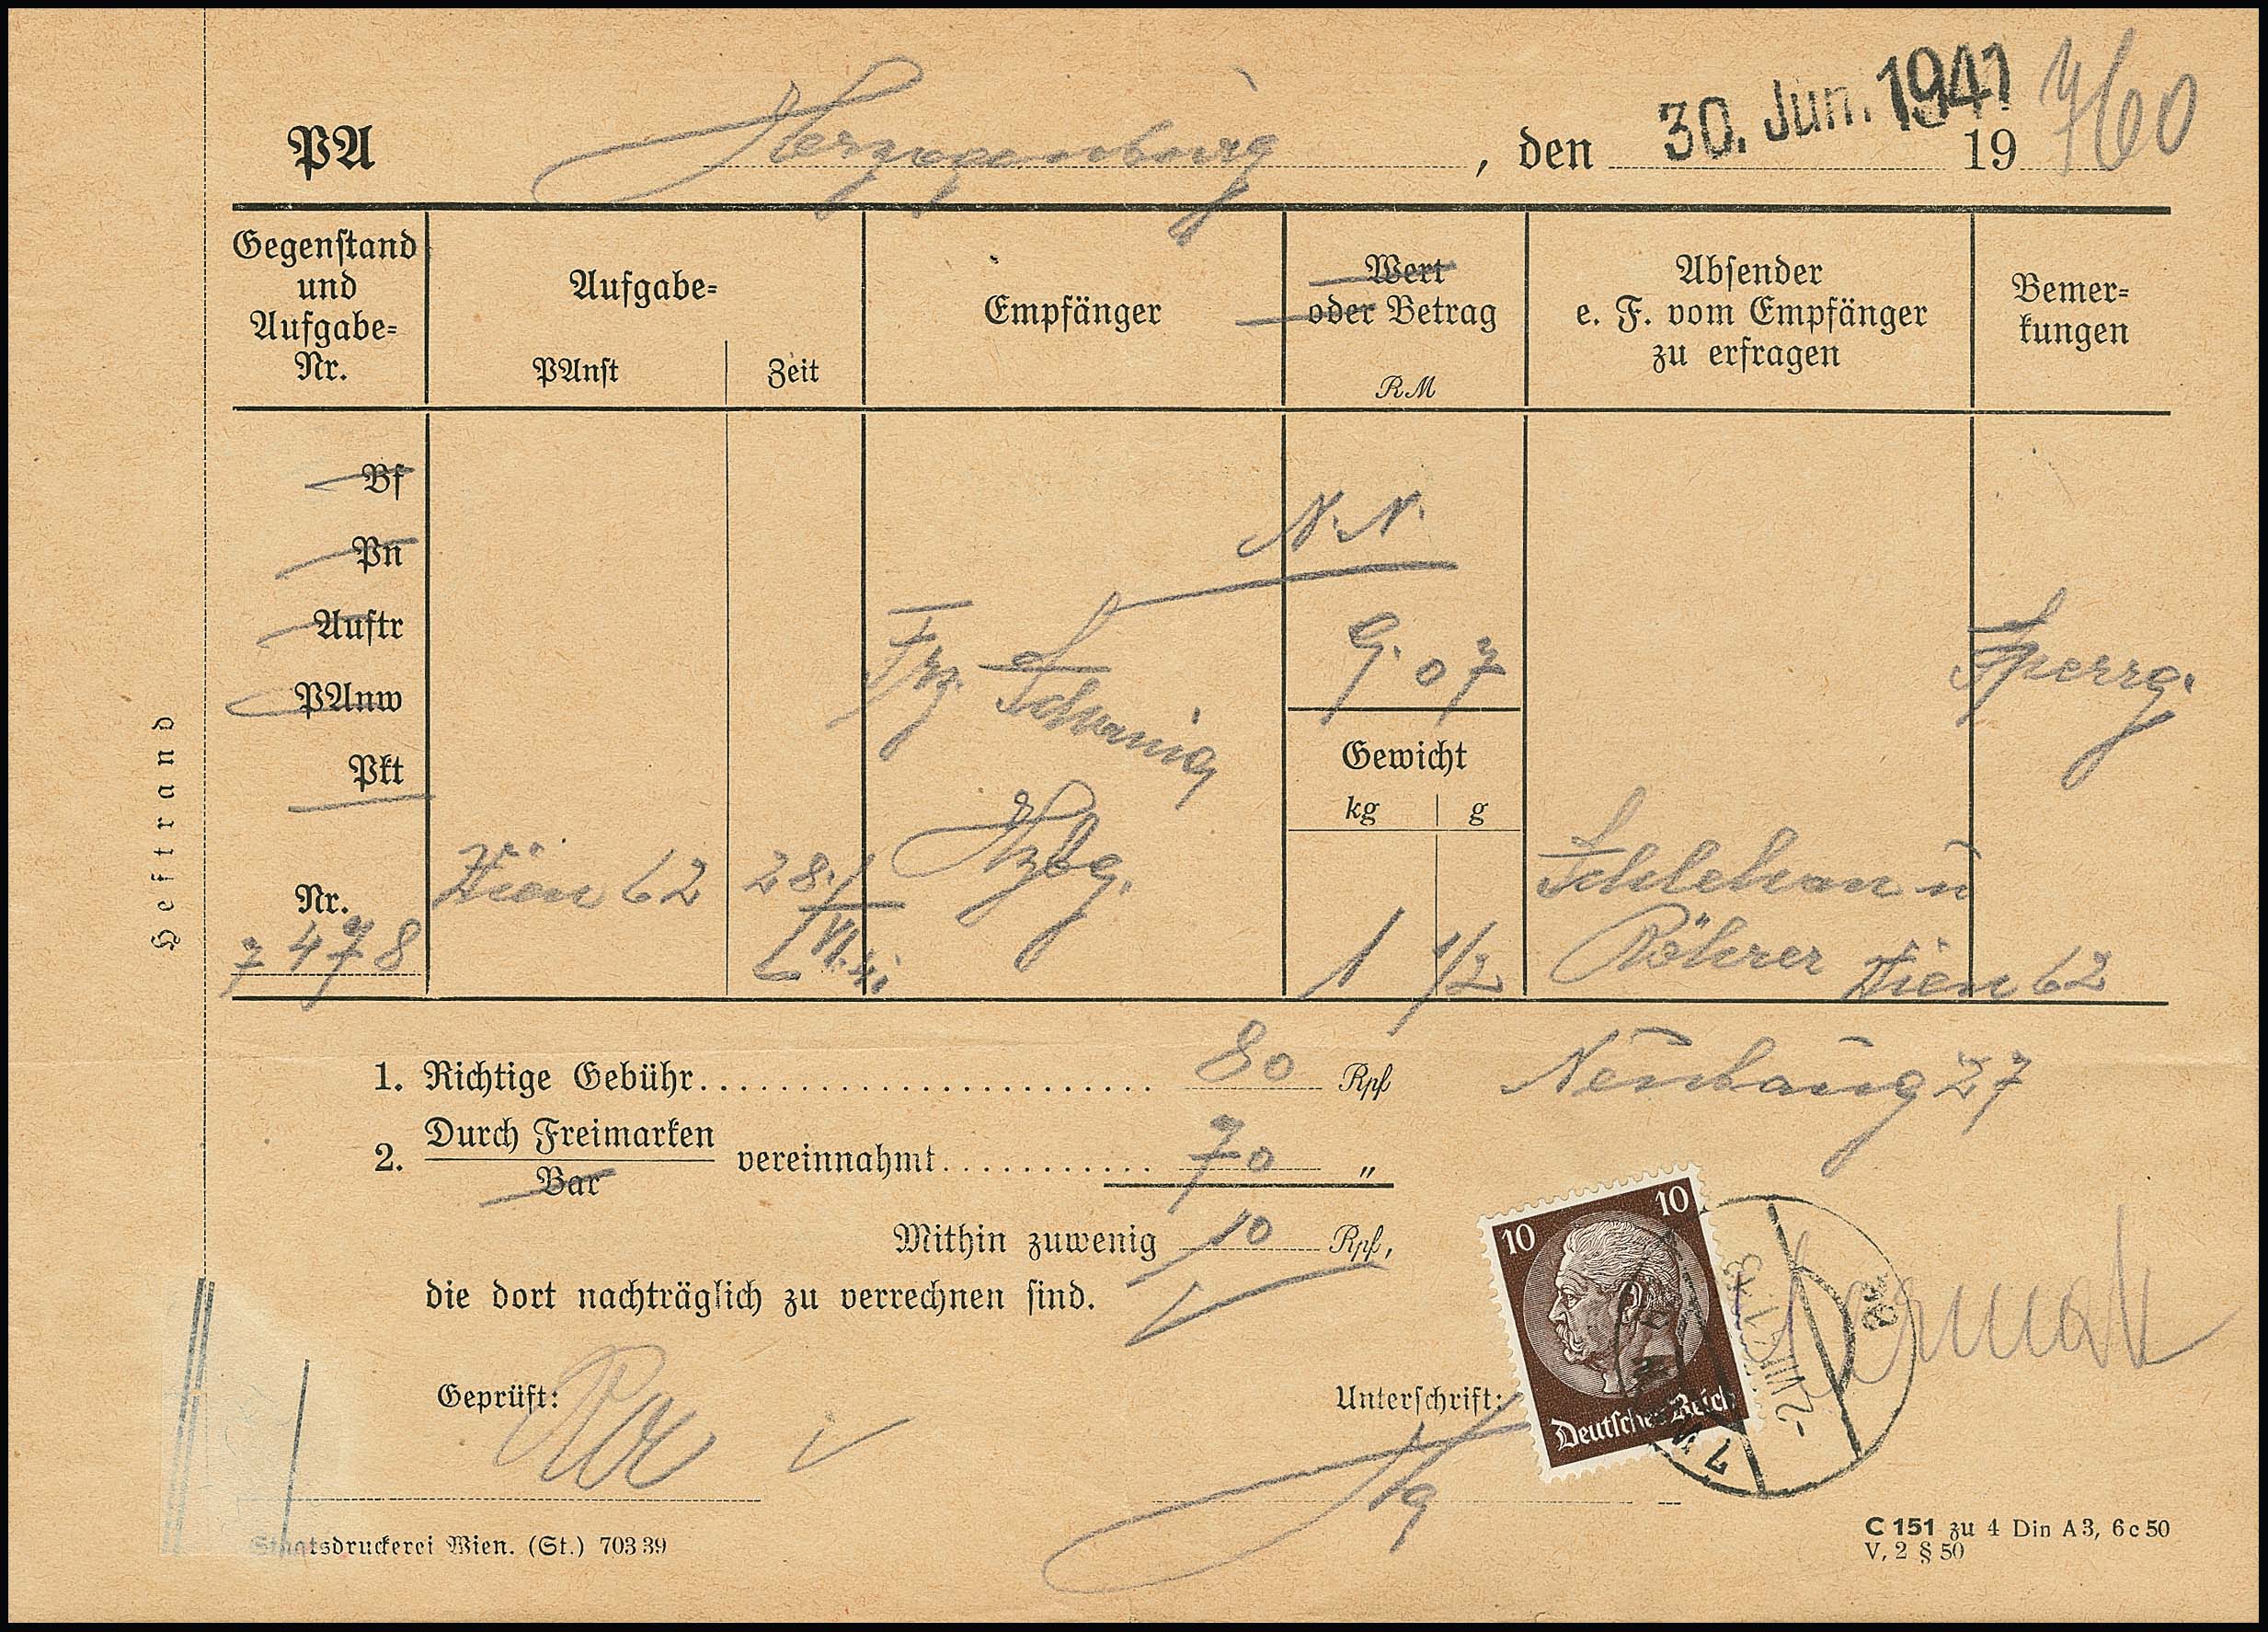 PA Herzogenburg, den 30. Jun. 1941 19 760
Gegenstand und Aufgabe-Nr.
Aufgabe-
PAnst
Zeit
Empfänger
Wert oder Betrag
RM
Absender e. F. vom Empfänger zu erfragen
Bemer-kungen
Bf
Pn
Auftr
PAnw
Pkt
Nr.
7478
Wien 62
28./VI. 41
N. N.
Frz. Schwanig
Hzbg.
9.07
Gewicht
kg g
1 1/2
Schlehan u
Röhrer Wien 62
Neubaug 27
Sperrg.
1. Richtige Gebühr 80 Rpf
2. Durch Freimarken
Bar
vereinnahmt 70 "
Mithin zuwenig 10 Rpf,
die dort nachträglich zu verrechnen sind.
Geprüft:
Unterschrift:
10 10
Deutsches Reich
Heftrand
Staatsdruckerei Wien. (St.) 703 39
C 151 zu 4 Din A 3, 6 c 50
V, 2 § 50